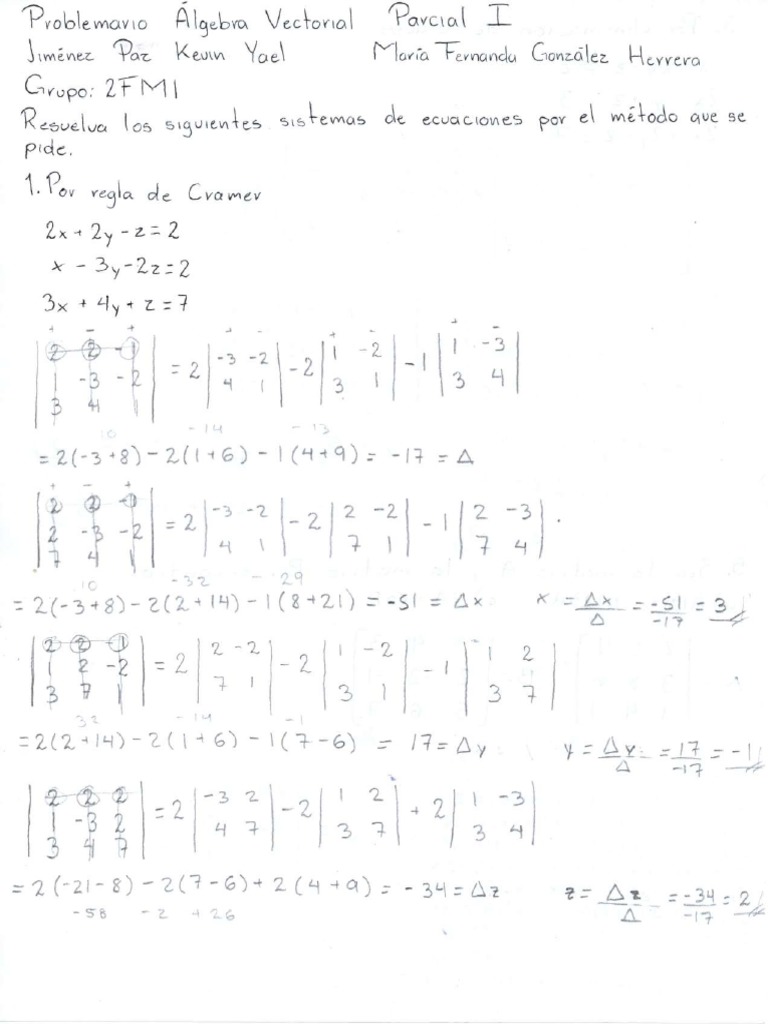 Problemario Álgebra Vectorial Parcial I
Jiménez Paz Kevin Yael María Fernanda González Herrera
Grupo: 2FM1
Resuelva los siguientes sistemas de ecuaciones por el método que se
pide.
1. Por regla de Cramer
2x + 2y - z = 2
x - 3y - 2z = 2
3x + 4y + z = 7
+ - + + - + - + -
| 2 2 -1 | = 2 | -3 -2 | - 2 | 1 -2 | - 1 | 1 -3 |
| 1 -3 -2 | | 4 1 | | 3 1 | | 3 4 |
| 3 4 1 |
10 -14 -13
= 2(-3+8) - 2(1+6) - 1(4+9) = -17 = Δ
+ - +
| 2 2 -1 | = 2 | -3 -2 | - 2 | 2 -2 | - 1 | 2 -3 | .
| 2 -3 -2 | | 4 1 | | 7 1 | | 7 4 |
| 7 4 1 |
10 -32 -29
= 2(-3+8) - 2(2+14) - 1(8+21) = -51 = Δx x = Δx/Δ = -51/-17 = 3
| 2 2 -1 | = 2 | 2 -2 | - 2 | 1 -2 | - 1 | 1 2 |
| 1 2 -2 | | 7 1 | | 3 1 | | 3 7 |
| 3 7 1 |
32 -14 -1
= 2(2+14) - 2(1+6) - 1(7-6) = 17 = Δy y = Δy/Δ = 17/-17 = -1
| 2 2 2 | = 2 | -3 2 | - 2 | 1 2 | + 2 | 1 -3 |
| 1 -3 2 | | 4 7 | | 3 7 | | 3 4 |
| 3 4 7 |
= 2(-21-8) - 2(7-6) + 2(4+9) = -34 = Δz z = Δz/Δ = -34/-17 = 2
-58 -2 +26